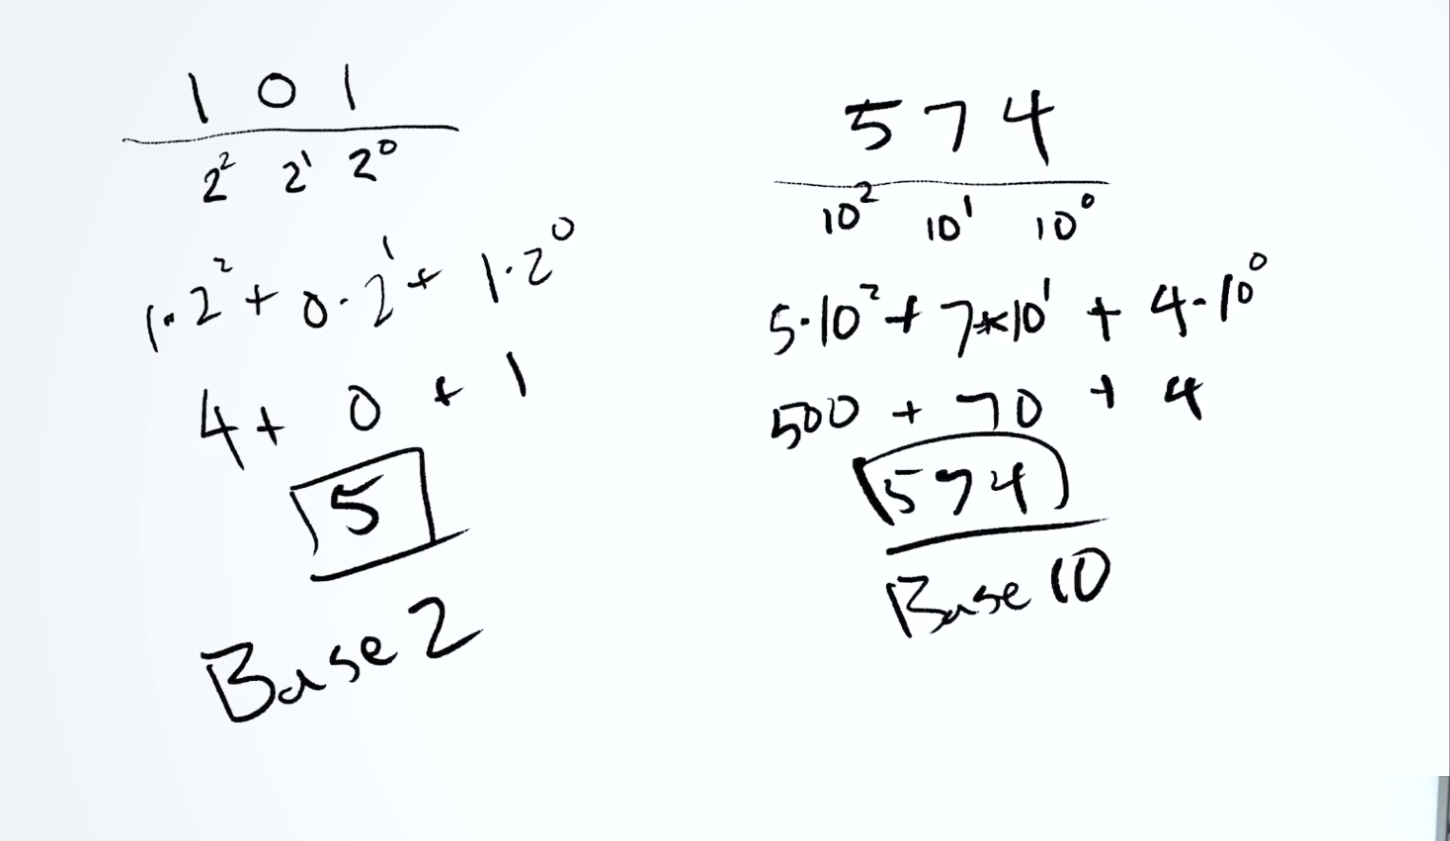 1 0 1
2² 2¹ 2⁰
1·2² + 0·2¹ + 1·2⁰
4 + 0 + 1
5
Base 2
5 7 4
10² 10¹ 10⁰
5·10² + 7*10¹ + 4·10⁰
500 + 70 + 4
574
Base 10